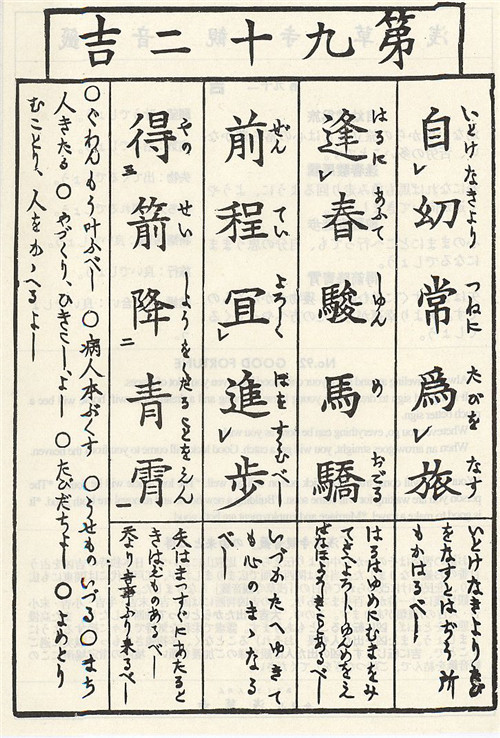 第九十二吉
いとけなきより つねに たびを なす
自幼常爲旅
いとけなきよりたびをなすはおほく所もかはるべし
はるにあふて しゆんめ おごる
逢春駿馬驕
はるはゆめにむまをみてきよろし
ぜんてい よろしく ほをすすむべし
前程宜進歩
いづかたへゆきても心のまゝなるべし
やの せいしようをくだることをえん
得箭降青霄
矢はまつすぐにあたるときはえものあるべし
天より幸事ふり来るべし
〇ぐわんもう叶ふべし 〇病人本ぶくす 〇うせものいづる 〇まち
人きたる 〇やづくり、ひきこし、よし 〇たびだちよし 〇よめどり
むことり、人をかゝへるよし